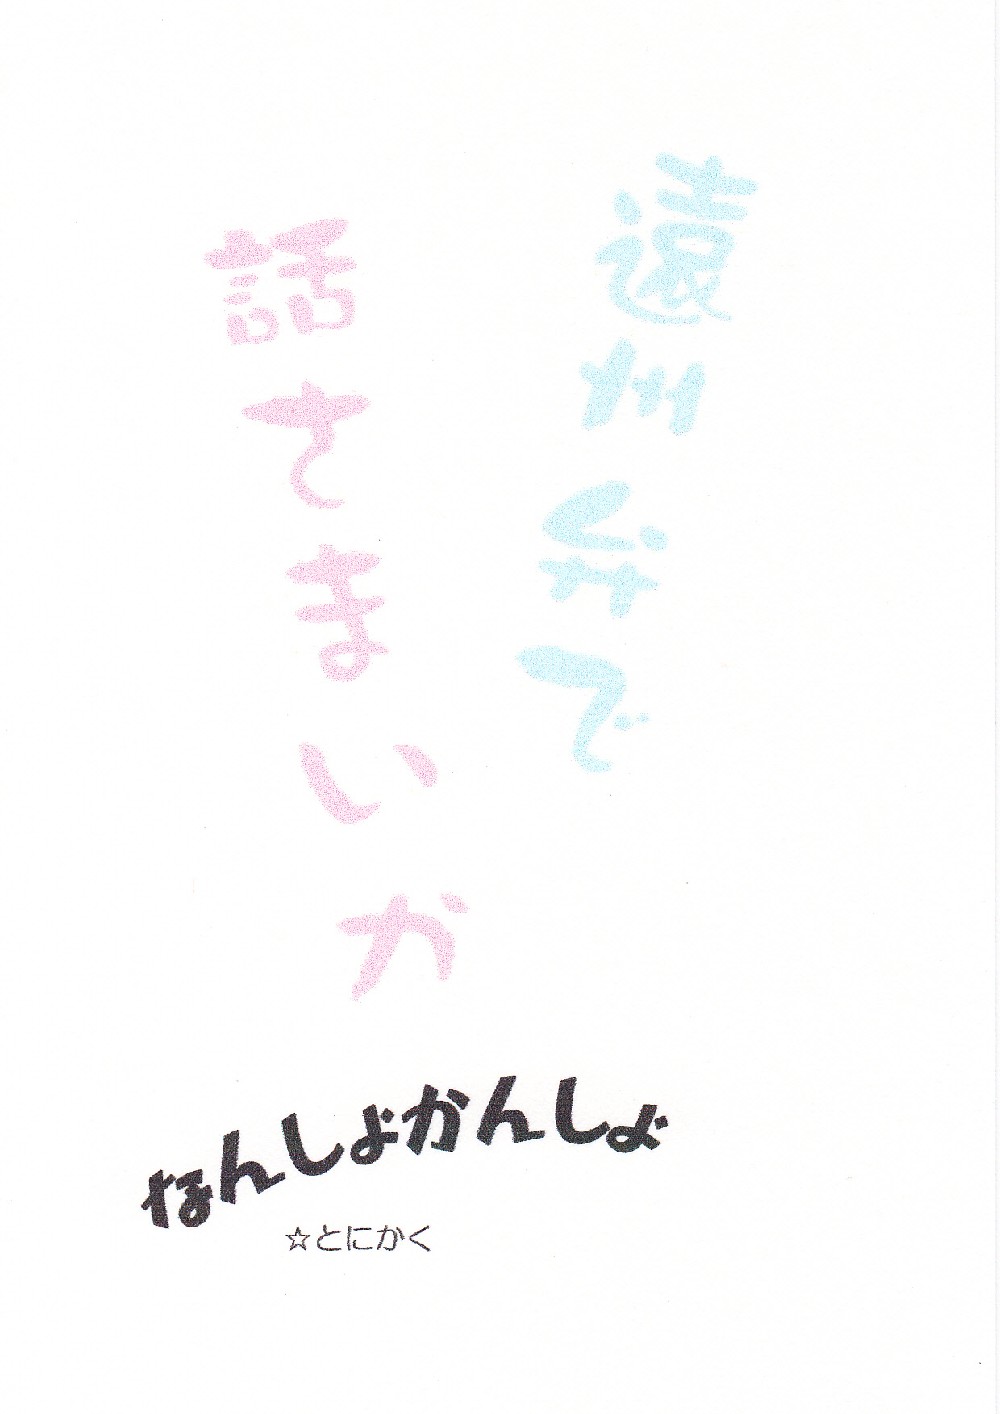 遠州弁で
話さまいか
なんしょかんしょ
☆とにかく